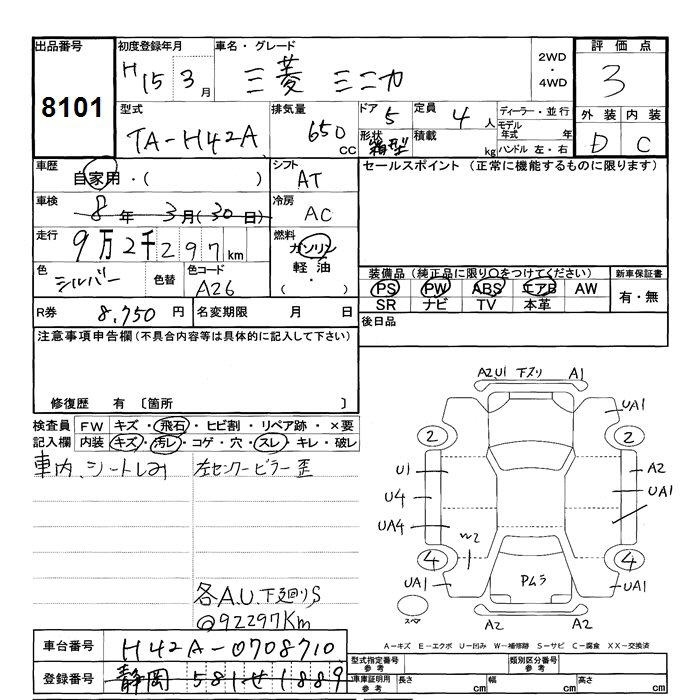 出品番号
8101
初度登録年月
H15 3月
車名・グレード
三菱 ミニカ
2WD
・
4WD
評価点
3
型式
TA-H42A
排気量
650 cc
ドア
5
形状
箱型
定員
4人
積載
kg
ディーラー・並行
モデル年式 年
ハンドル 左・右
外装 内装
D C
車歴
自家用・( )
シフト
AT
車検
8年 3月(30日)
冷房
AC
走行
9万2千297km
燃料
ガソリン
軽油
( ・ )
色
シルバー
色替
色コード
A26
R券
8,750円
名変期限 月 日
セールスポイント (正常に機能するものに限ります)
装備品 (純正品に限り○をつけてください)
PS PW ABS エアB AW
SR ナビ TV 本革
新車保証書
有・無
後日品
注意事項申告欄(不具合内容等は具体的に記入して下さい)
修復歴 有 〔箇所 〕
検査員記入欄
FW キズ・飛石・ヒビ割・リペア跡・×要
内装 キズ・汚レ・コゲ・穴・スレ・キレ・破レ
車内、シートしみ
左センターピラー歪
各A.U.下廻りS
@92297Km
A2,U1 下スリ A1
UA1
2 2
U1 A2
U4 UA1
UA4
W2
4 4
UA1 Pムラ UA1
スペア
A2 A2
A-キズ E-エクボ U-凹み W-補修跡 S-サビ C-腐食 XX-交換済
車台番号
H42A-0708710
登録番号
静岡 581せ1889
型式指定番号 参考
類別区分番号 参考
車庫証明用 参考
長さ cm 幅 cm 高さ cm